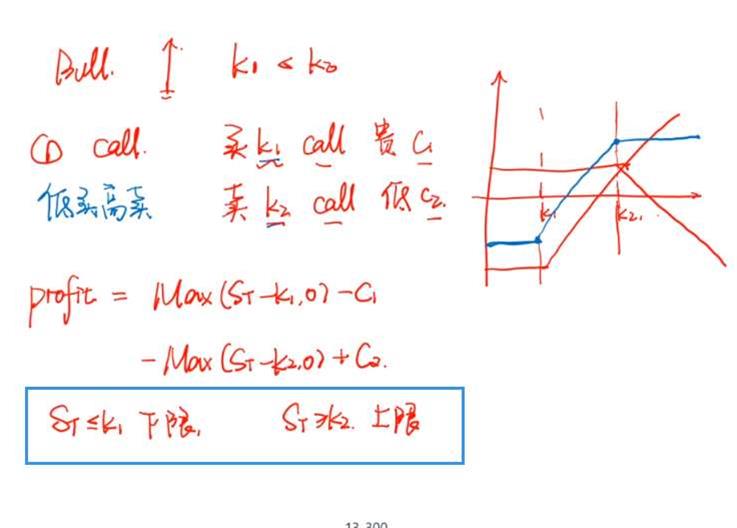 Bull. K₁ < K₂
① call. 买 K₁ call 贵 C₁
低买高卖 卖 K₂ call 低 C₂.
K₁ K₂.
profit = Max(S_T-K₁,0) - C₁
- Max(S_T-K₂,0) + C₂.
S_T≤K₁ 下限, S_T≥K₂. 上限
13-300